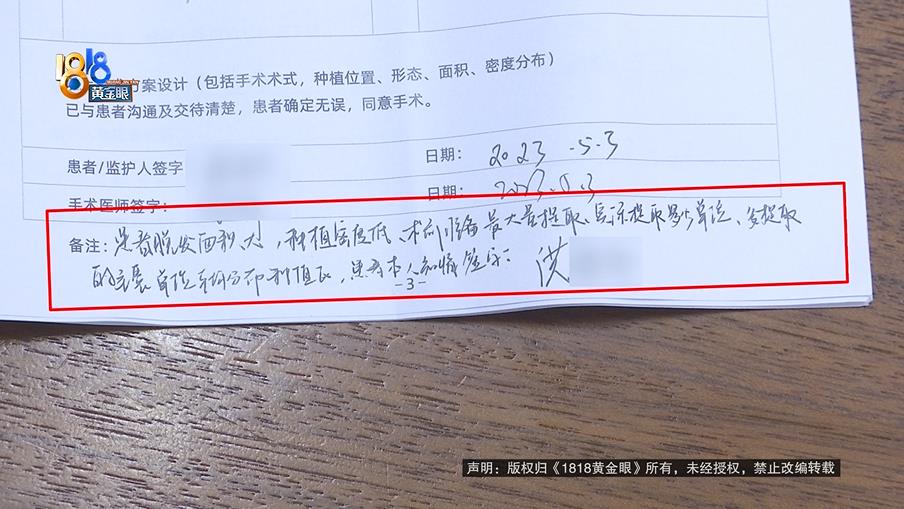 1818
黄金眼
方案设计（包括手术术式，种植位置、形态、面积、密度分布）
已与患者沟通及交待清楚，患者确定无误，同意手术。
患者/监护人签字
日期： 2023.5.3
手术医师签字：
日期： 2023.5.3
备注：患者脱发面积大，种植密度低、术前 最大量提取、应 提取多少单位、多提取
的 单位 均分布种植区，患者本人知情签字： 洪
-3-
声明：版权归《1818黄金眼》所有，未经授权，禁止改编转载